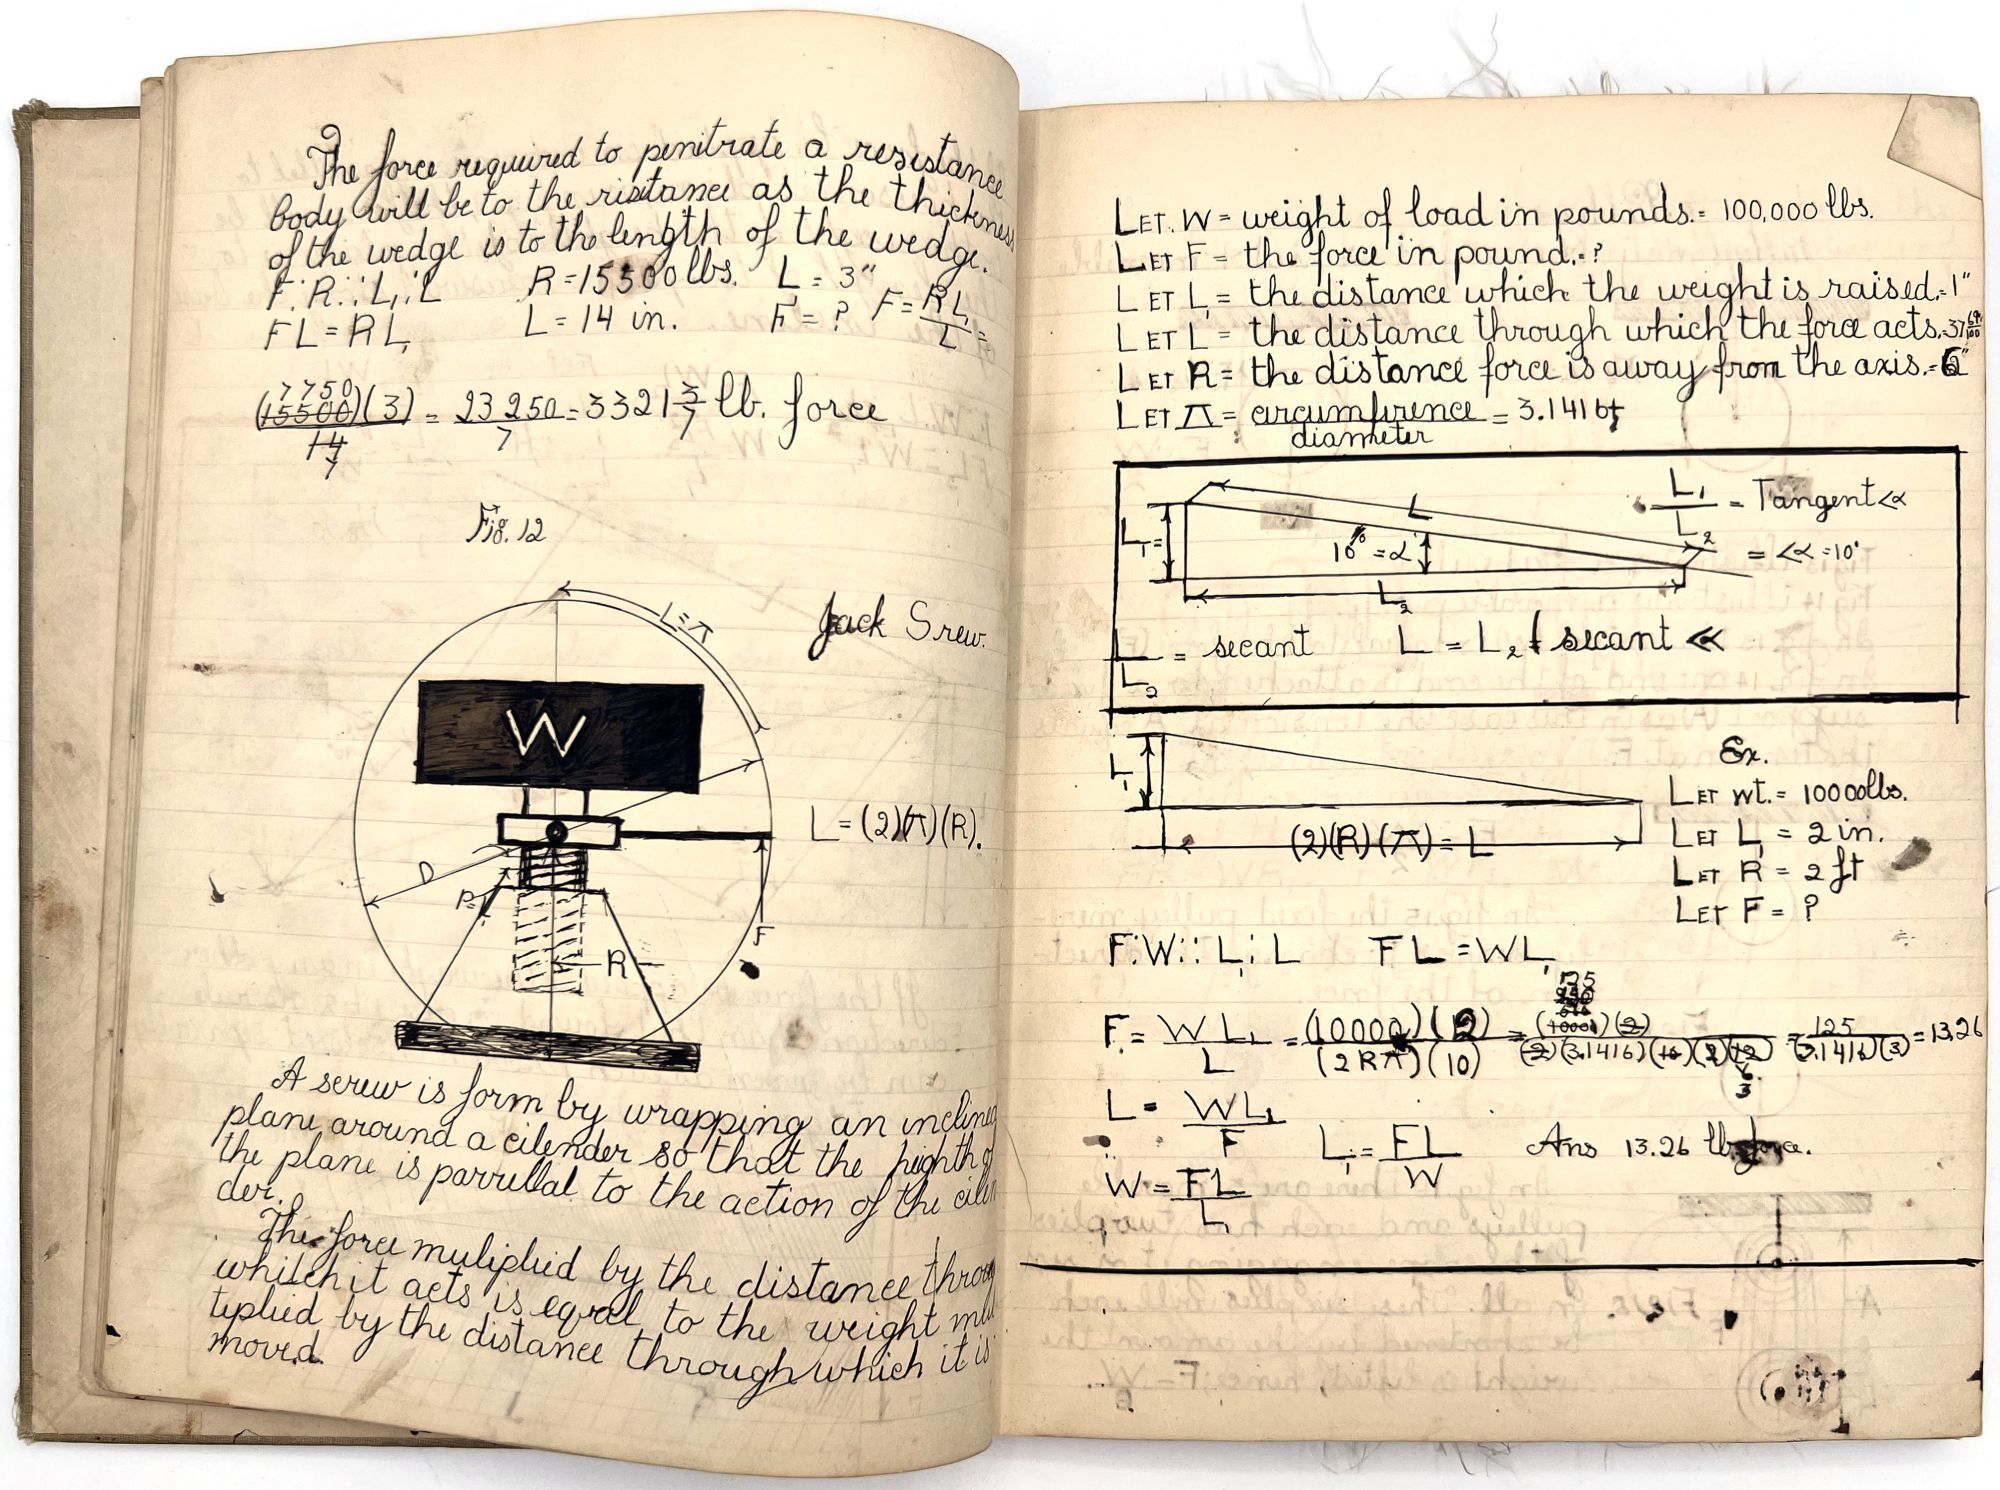 The force required to penitrate a resistance
body will be to the ristance as the thickness
of the wedge is to the length of the wedge.
F:R::L₁:L R=15500 lbs. L₁ = 3"
FL=RL₁ L=14 in. F=? F=RL₁/L=
7750
(15500)(3)/14 = 23250/7 = 3321 3/7 lb. force
7
Fig. 12
L=π
Jack Srew.
W
L=(2)(π)(R).
D
F
R
A screw is form by wrapping an inclined
plane around a cilender so that the heighth of
the plane is parrellal to the action of the cilen
der.
The force muliplied by the distance throug
whitch it acts is equal to the weight mul
tiplied by the distance through which it is
moved.
LET W = weight of load in pounds. = 100,000 lbs.
LET F = the force in pound. = ?
LET L₁ = the distance which the weight is raised. = 1"
LET L = the distance through which the force acts. = 37 69/100
LET R = the distance force is away from the axis. = 6"
LET π = circumfirence/diameter = 3.1416+
L₁/L₂ = Tangent <α
L
L₁ =
10° = α
= <α = 10°
L₂
L/L₂ = secant L = L₂ secant <α
L₁
(2)(R)(π) = L
Ex.
LET wt. = 10000 lbs.
LET L₁ = 2 in.
LET R = 2 ft
LET F = ?
F:W::L₁:L FL = WL₁
125
F = WL₁/L = (10000)(2)/(2Rπ)(10) = (10000)(2)/(2)(3.1416)(10)(2)(12) = 125/(3.1416)(3) = 13.26
6
3
L = WL₁/F
L₁ = FL/W Ans 13.26 lb. force.
W = FL/L₁